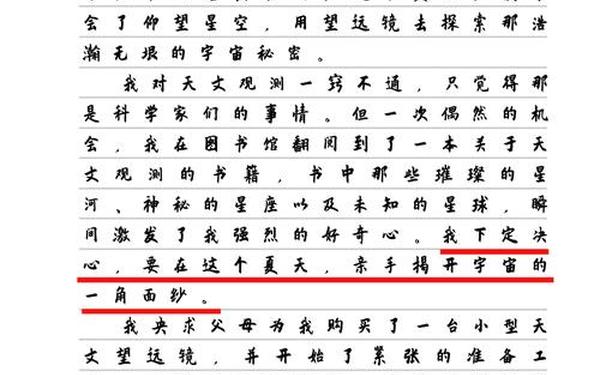 会了仰望星空，用望远镜去探索那浩
瀚无垠的宇宙秘密。
我对天文观测一窍不通，只觉得那
是科学家们的事情。但一次偶然的机
会，我在图书馆翻阅到了一本关于天
文观测的书籍，书中那些璀璨的星
河、神秘的星座以及未知的星球，瞬
间激发了我强烈的好奇心。我下定决
心，要在这个夏天，亲手揭开宇宙的
一角面纱。
我央求父母为我购买了一台小型天
文望远镜，并开始了紧张的准备工